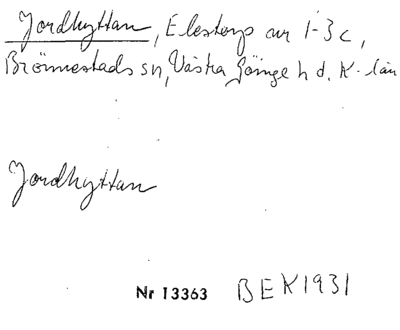 Jordhyttan, Elestorp nr 1-3c,
Brönnestads sn, Västra Göinge hd. K-län
Jordhyttan
Nr 13363 BEK1931